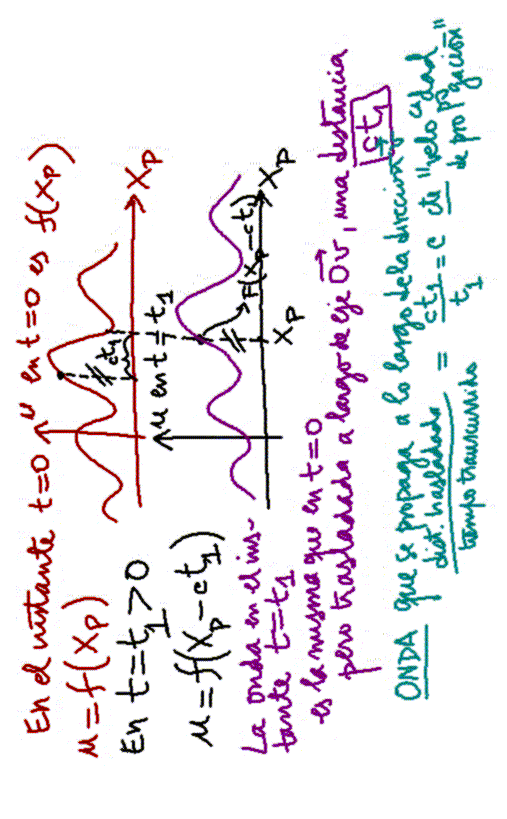 En el instante t=0 u en t=0 es f(Xp)
u=f(Xp)
Xp
ct₁
En t=t₁>0
u en t=t₁
u=f(Xp-ct₁)
f(Xp-ct₁)
Xp
Xp
La onda en el ins-
tante t=t₁
es la misma que en t=0
pero trasladada a largo de eje Ov, una distancia
ct₁
ONDA que se propaga a lo largo de la dirección v
dist. trasladado / tiempo transcurrido = ct₁ / t₁ = c de "velocidad
de propagación"